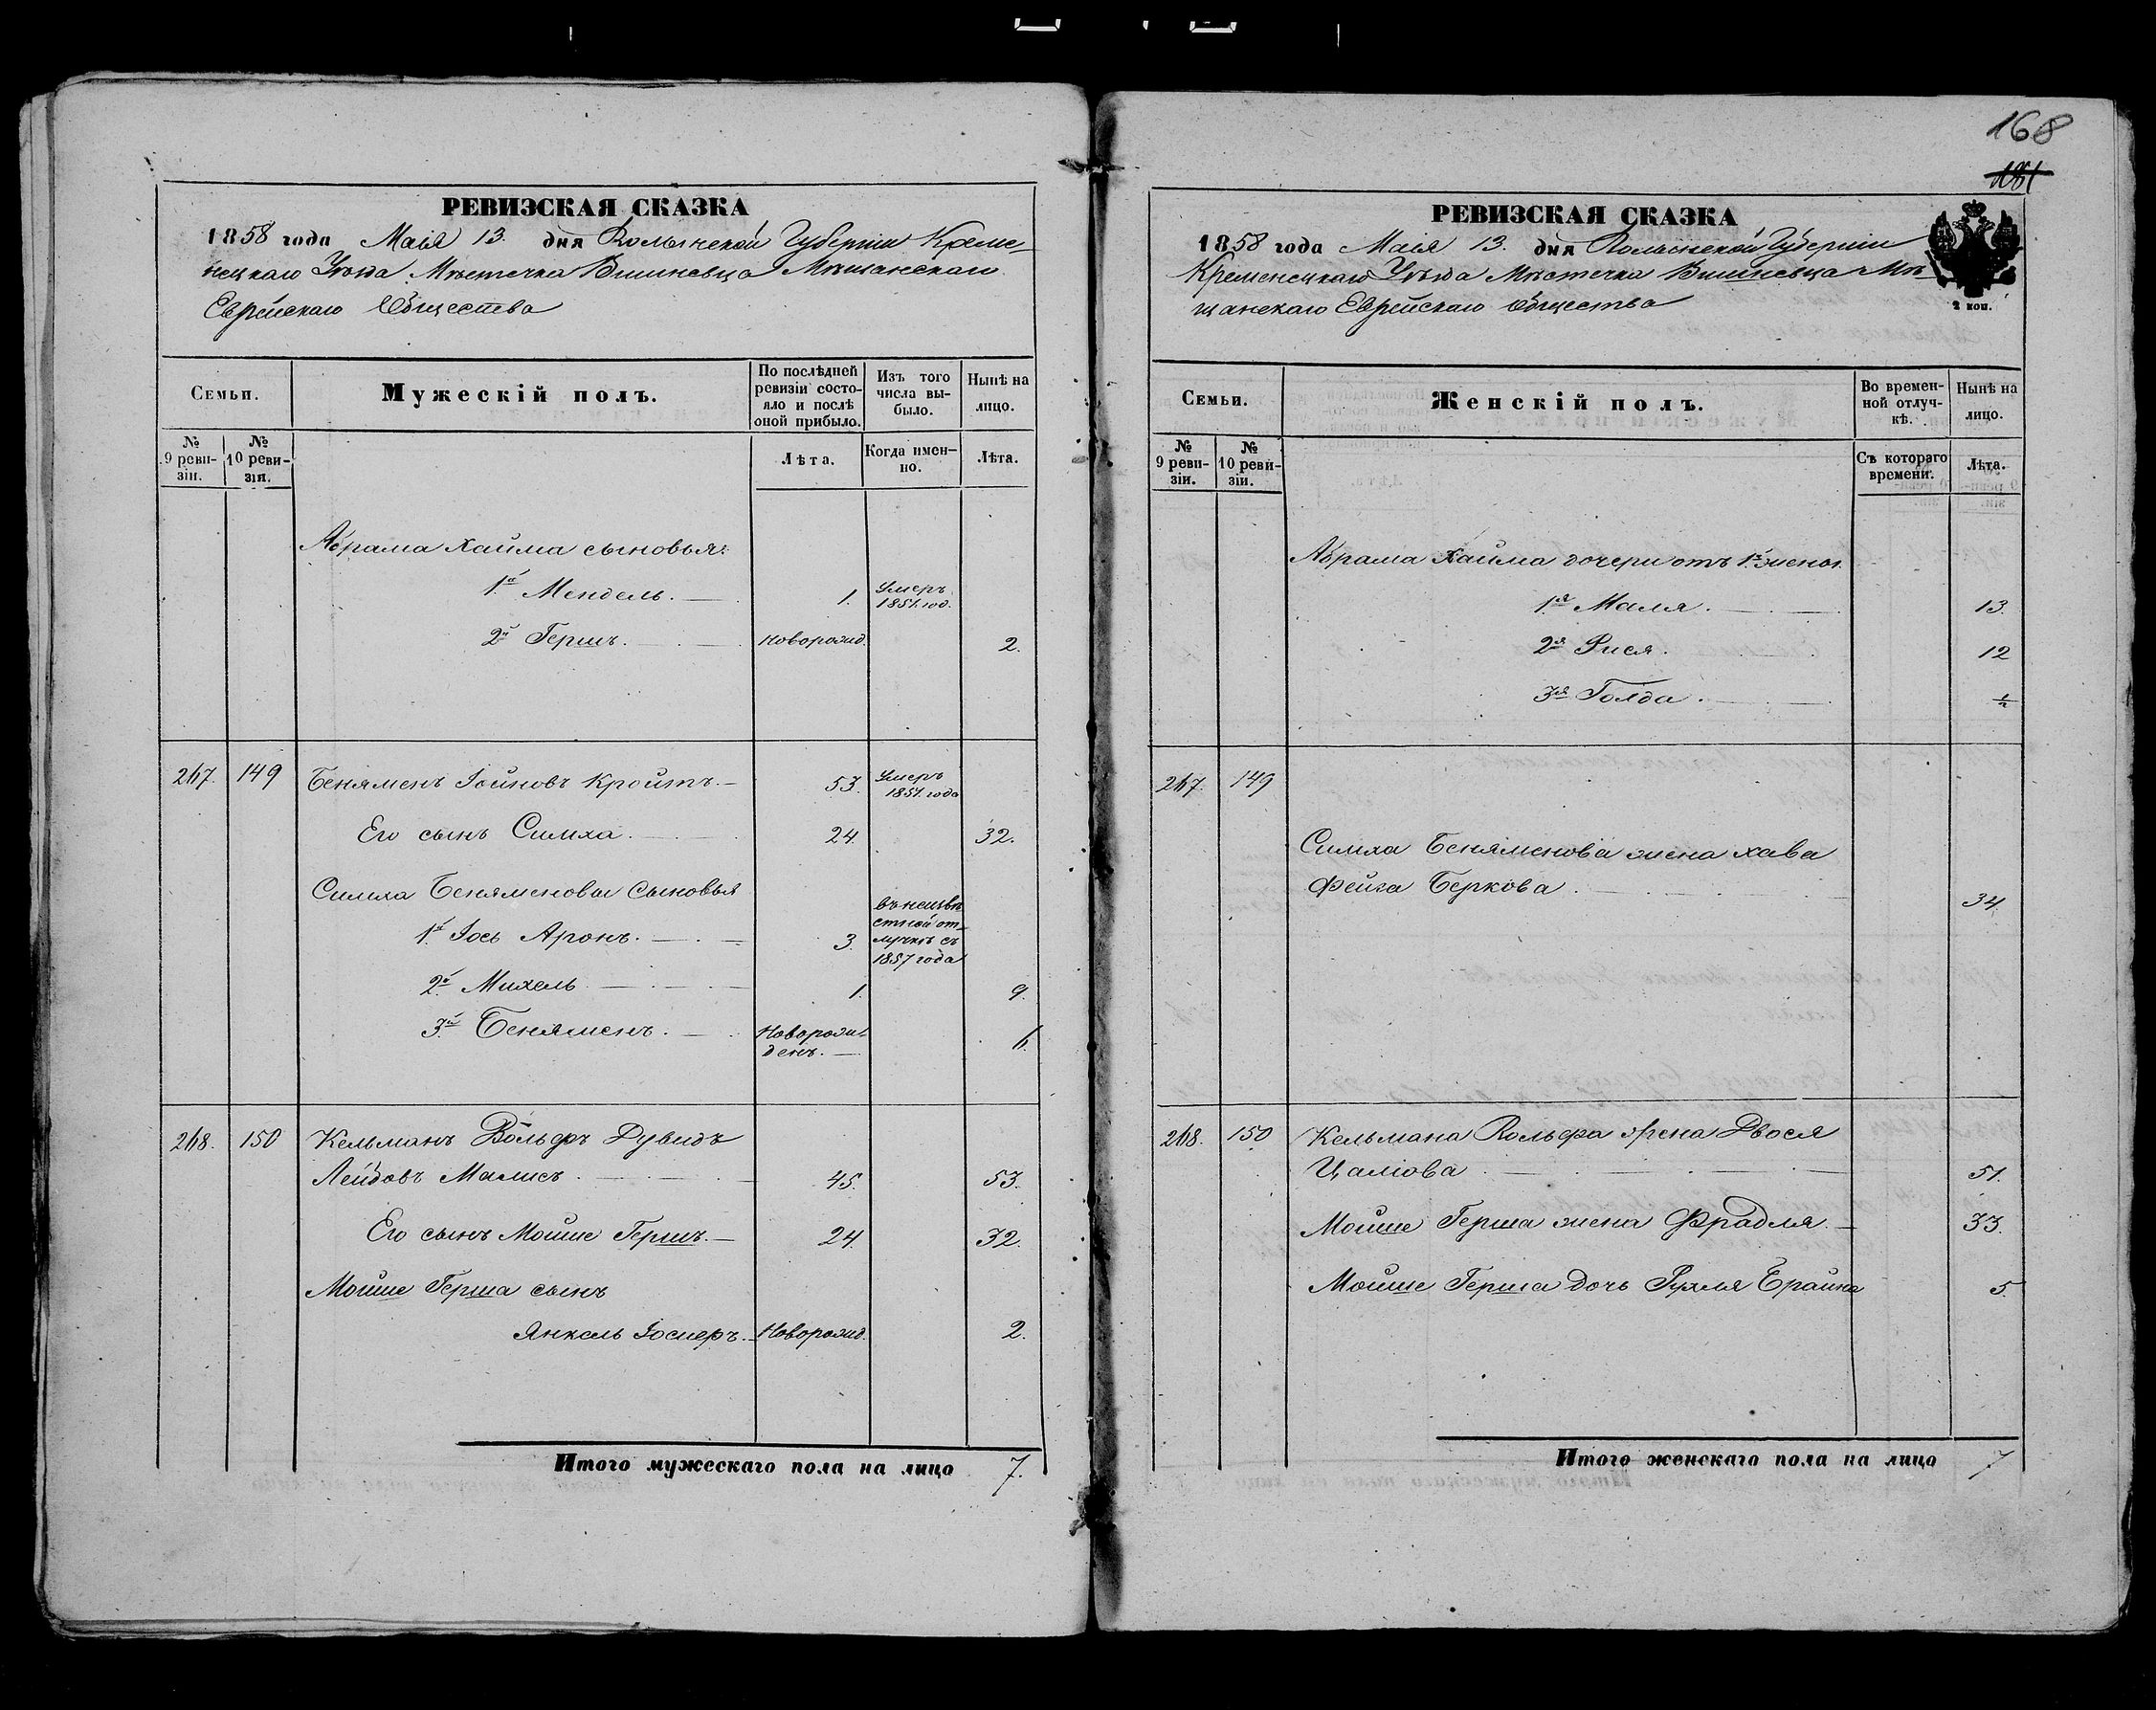 168
РЕВИЗСКАЯ СКАЗКА
1858 года Маія 13. дня Волынской Губерніи Креме-
нецкаго Уѣзда Мѣстечка Вишневца Мѣщанскаго
Еврейскаго Общества
Семьи.
Мужескій полъ.
По послѣдней ревизіи состо-
яло и послѣ
оной прибыло.
Изъ того
числа вы-
было.
Нынѣ на
лицо.
№ 9 реви-
зіи.
№ 10 реви-
зіи.
Лѣта.
Когда имен-
но.
Лѣта.
Абрама Хаима сыновья:
1й Мендель. 1. Умеръ 1851. год.
2й Гершъ. Новорожд. 2.
267. 149 Беняменъ Іойновъ Кройтъ. 53. Умеръ 1851. года
Его сынъ Симха. 24. 32.
Симха Беняменова Сыновья
1й Іось Аронъ. 3. въ неизвѣ
стной от-
лучкѣ съ
1857 года
2й Михель 1. 9.
3й Беняменъ. Новорож-
денъ. 6.
268. 150 Кельманъ Вольфъ Дувидъ
Лейбовъ Малисъ. 45. 53.
Его сынъ Мойше Гершъ. 24. 32.
Мойше Герша сынъ
Янкель Іосиеръ. Новорожд. 2.
Итого мужескаго пола на лицо 7.
РЕВИЗСКАЯ СКАЗКА
1858 года Маія 13. дня Волынской Губерніи
Кременецкаго Уѣзда Мѣстечка Вишневца Мѣ-
щанскаго Еврейскаго Общества
2 коп.
Семьи.
Женскій полъ.
Во времен-
ной отлуч-
кѣ.
Нынѣ на
лицо.
№ 9 реви-
зіи.
№ 10 реви-
зіи.
Съ котораго
времени.
Лѣта.
Абрама Хаима дочери отъ 1й жены
1я Маля. 13.
2я Рися. 12
3я Голда. ½
267. 149
Симха Беняменова жена Хава
Фейга Беркова. 34.
268. 150 Кельмана Вольфа жена Двося
Цаліова 51.
Мойше Герша жена Фрадля. 33.
Мойше Герша дочь Рухля Брайна 5.
Итого женскаго пола на лицо 7